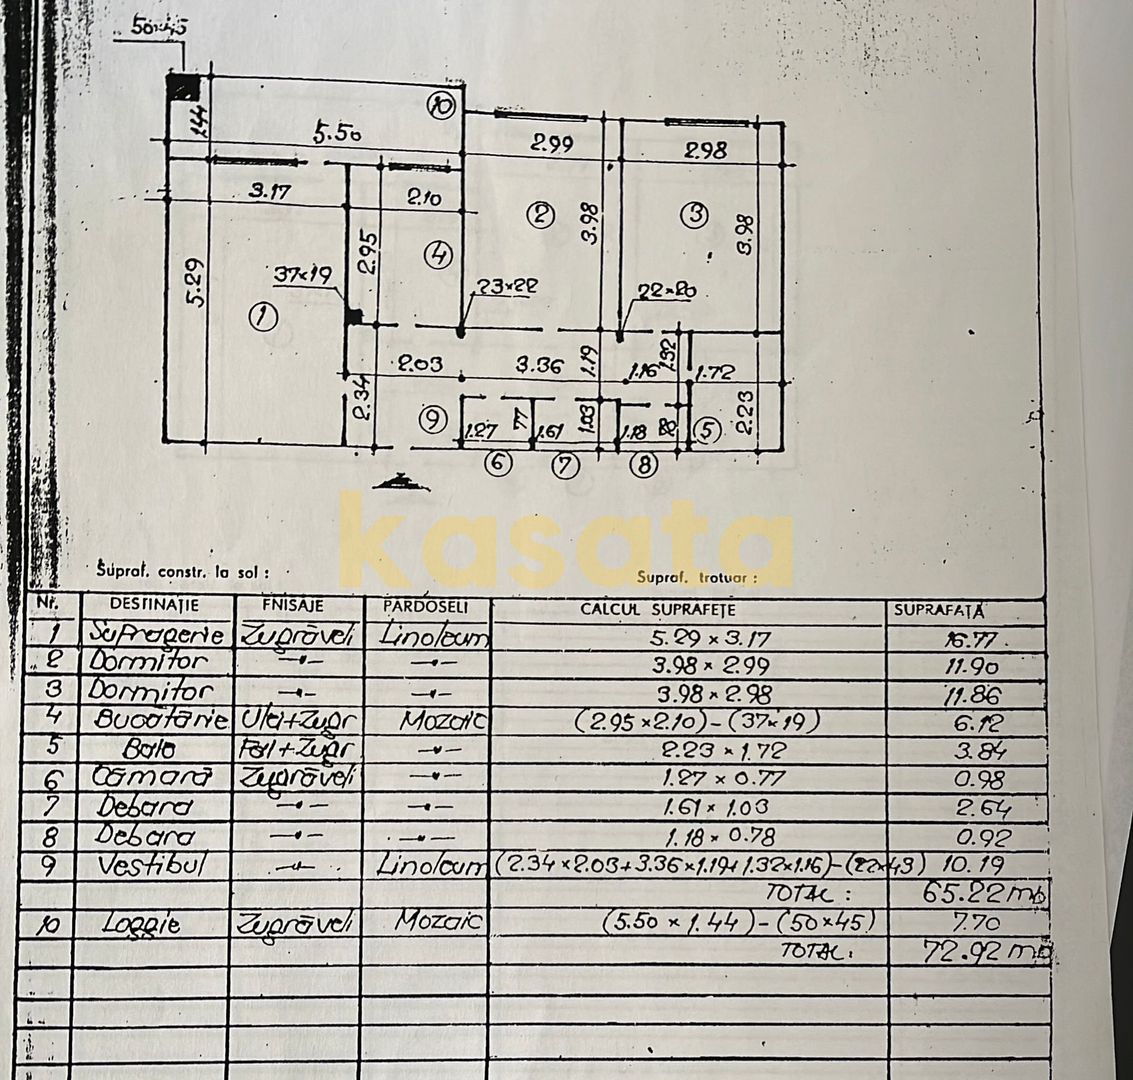 50×45
10
1.44
5.50
2.99
2.98
3.17
2.10
2
3
3.98
3.98
2.95
4
5.29
37×19
23×22
22×20
1
2.03
3.36
1.19
1.16
1.32
1.72
2.34
9
1.27
77
1.61
1.03
1.18
5
2.23
6
7
8
kasata
Supraf. constr. la sol :
Supraf. trotuar :
Nr. DESTINAȚIE FNISAJE PARDOSELI CALCUL SUPRAFEȚE SUPRAFAȚA
1 Sufragerie Zugrăveli Linoleum 5.29 × 3.17 16.77
2 Dormitor —•— —•— 3.98 × 2.99 11.90
3 Dormitor —•— —•— 3.98 × 2.98 11.86
4 Bucătărie Ulei+Zugr Mozaic (2.95 × 2.10) – (37×19) 6.12
5 Baie Fai+Zugr —•— 2.23 × 1.72 3.84
6 Cămară Zugrăveli —•— 1.27 × 0.77 0.98
7 Debara —•— —•— 1.61 × 1.03 2.64
8 Debara —•— —•— 1.18 × 0.78 0.92
9 Vestibul —•— Linoleum (2.34 × 2.03 + 3.36 × 1.19 + 1.32×1.16) – (22×43) 10.19
TOTAL : 65.22 mp
10 Loggie Zugrăveli Mozaic (5.50 × 1.44) – (50×45) 7.70
TOTAL : 72.92 mp